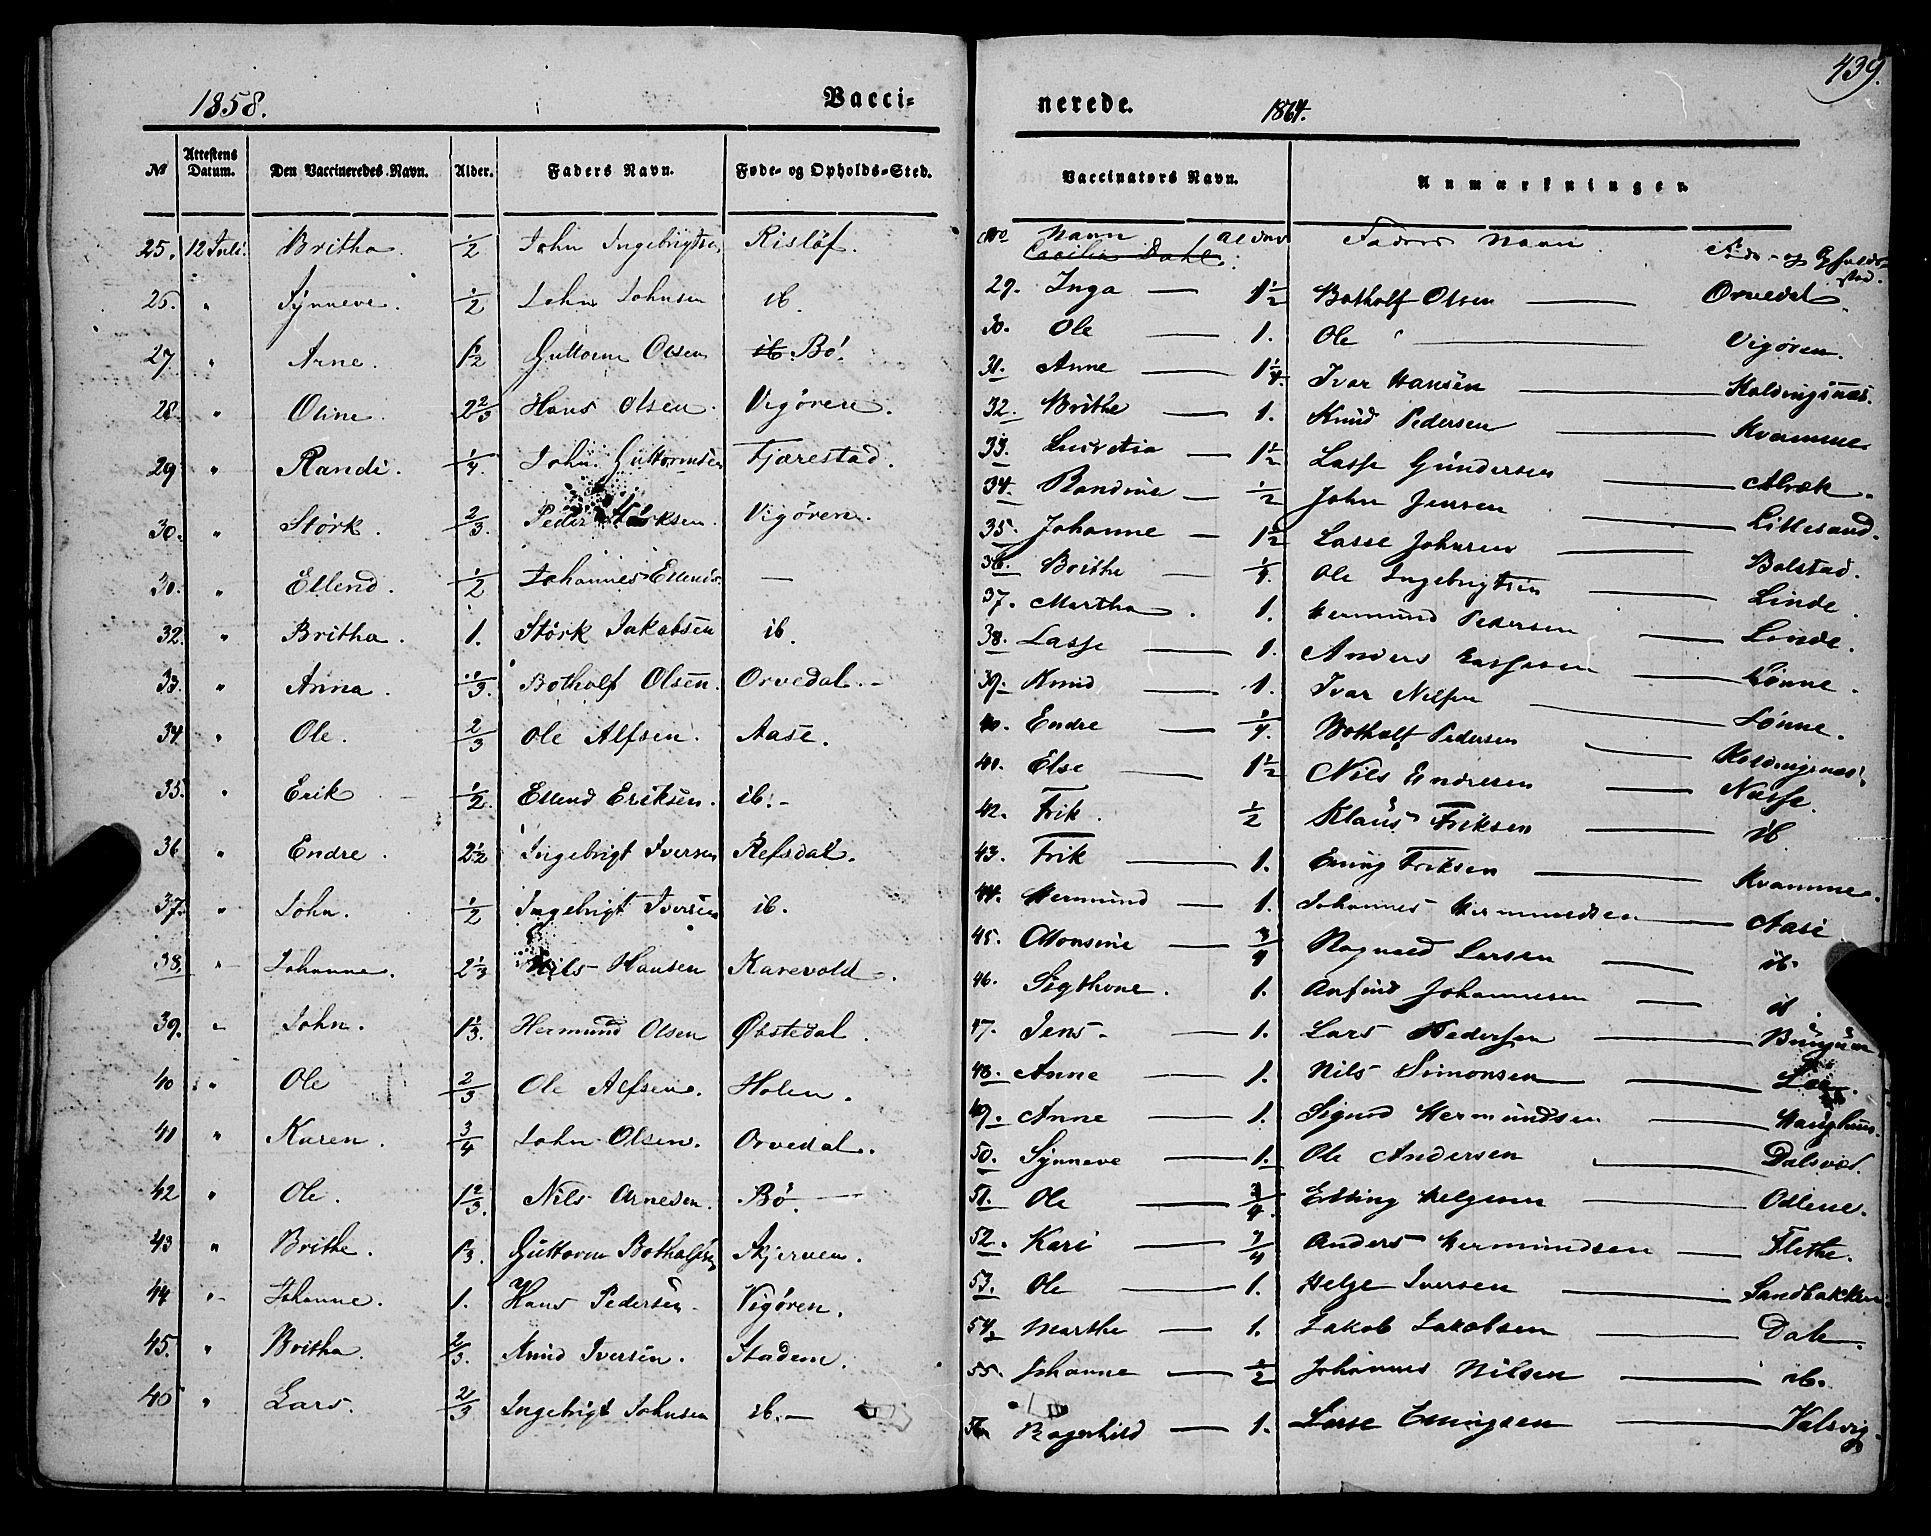 439.
1858. Vacci=
№ Attestens Datum. Den Vaccineredes Navn. Alder. Faders Navn. Føde- og Opholds=Sted.
25. 12 Juli. Britha. 1/2 John Ingebrigtsen Risløf.
26. " Synneve. 1/2 John Johnsen ib.
27 " Arne. 1 1/2 Guttorm Olsen Bø.
28. " Oline. 2 2/3 Hans Olsen. Vigøren.
29 " Randi. 1/4. John Guttormsen Fjærestad.
30. " Størk. 2/3. Peder Størksen. Vigøren.
30. " Ellend. 1/2 Johannes Ellends. —
32. " Britha. 1. Størk Jakobsen ib.
33. " Anna. 1/3. Botholf Olsen. Orvedal.
34. " Ole. 2/3 Ole Alfsen. Aase.
35. " Erik 1/2. Ellend Eriksen. ib.
36 " Endre. 2 1/2 Ingebrigt Iversen Refsdal.
37. " John. 1/2 Ingebrigt Iversen ib.
38. " Johanne. 2 1/3 Nils Hansen Karevold.
39. " John. 1 1/3. Hermund Olsen Øvstedal.
40 " Ole 2/3 Ole Alfsen. Holen.
41 " Karen. 3/4 John Olsen. Orvedal.
42 " Ole. 1 2/3. Nils Arnesen. Bø.
43 " Brithe. 1 1/3. Guttorm Botholfsen Skjerven.
44 " Johanne. 1. Hans Pedersen Vigøren.
45. " Britha. 2/3. Knud Iversen. Stadem.
46 " Lars. 2/3 Ingebrigt Johnsen ib.
nerede. 1864.
Vaccinators Navn. Anmærkninger.
No Navn Alder Faders Navn Føde- og Opholds-
Cecilie Dahl. sted.
29. Inga — 1 1/2 Botholf Olsen — Orvedal.
30. Ole — 1. Ole " — Vigøren.
31. Anne — 1 1/4. Ivar Hansen — Koldingsnæs.
32. Brithe — 1. Knud Pedersen — Kvamme
33. — 1 1/2 Lasse Gundersen —
34. Randine — 1/2 John Jensen — Littesand.
35. Johanne — 1 1/2 Lasse Johnsen — Bolstad.
36. Brithe — 1/4. Ole Ingebrigtsen — Linde.
37. Martha. 1. Hermund Pedersen — Linde.
38. Lasse — 1. Anders — Lønne.
39. Knud — 1. Ivar Nilsen — Lønne.
40. Endre — 1/4. Botholf Pedersen — Koldingsnæs.
41. Else — 1 1/2 Nils Endresen — Næsse.
42. Erik. 1/2 Klaus Eriksen — ib.
43. Erik — 1. Eriksen — Kvamme.
44. Hermund — 1. Johannes Hermundsen — Aase
45. Monsine — 3/4 Ragnald Larsen — ib.
46. Sigthone. 1. Anfind Johannesen — ib.
47. Jens — 1. Lars Pedersen —
48. Anne — 1. Nils Simonsen —
49. Anne — 1. Sigurd Hermundsen — Haughuus.
50. Synneve — 1. Ole Andersen —
51. Ole — 3/4. Erling Helgesen — Odlene.
52. Kari — 3/4 Anders Hermundsen — Flethe.
53. Ole — 1. Helge Iversen — Sandbakken
54. Marthe — 1. Jakob Jakobsen — Dale
55. Johanne — 1/2 Johannes Nilsen — ib.
56. Ragnhild — 1. Lasse — Kalsvig.